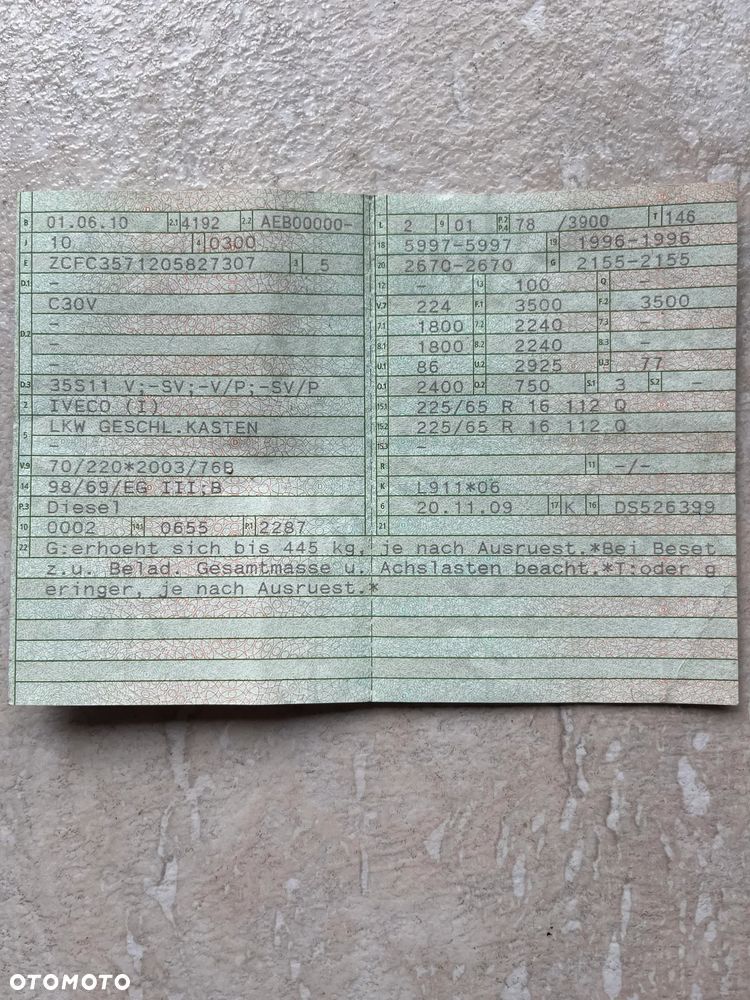 B 01.06.10 2.1 4192 2.2 AEB00000-
J 10 4 0300
E ZCFC3571205827307 3 5
D.1 -
C30V
-
D.2 -
-
D.3 35S11 V;-SV;-V/P;-SV/P
2 IVECO (I)
5 LKW GESCHL.KASTEN
-
V.9 70/220*2003/76B
14 98/69/EG III;B
P.3 Diesel
10 0002 14.1 0655 P.1 2287
L 2 9 01 P.2 P.4 78 /3900 T 146
18 5997-5997 19 1996-1996
20 2670-2670 G 2155-2155
12 - 13 100 Q -
V.7 224 F.1 3500 F.2 3500
7.1 1800 7.2 2240 7.3 -
8.1 1800 8.2 2240 8.3 -
U.1 86 U.2 2925 U.3 77
O.1 2400 O.2 750 S.1 3 S.2 -
15.1 225/65 R 16 112 Q
15.2 225/65 R 16 112 Q
15.3 -
R 11 -/-
K L911*06
6 20.11.09 17 K 16 DS526399
21
22 G:erhoeht sich bis 445 kg, je nach Ausruest.*Bei Beset
z.u. Belad. Gesamtmasse u. Achslasten beacht.*T:oder g
eringer, je nach Ausruest.*
OTOMOTO